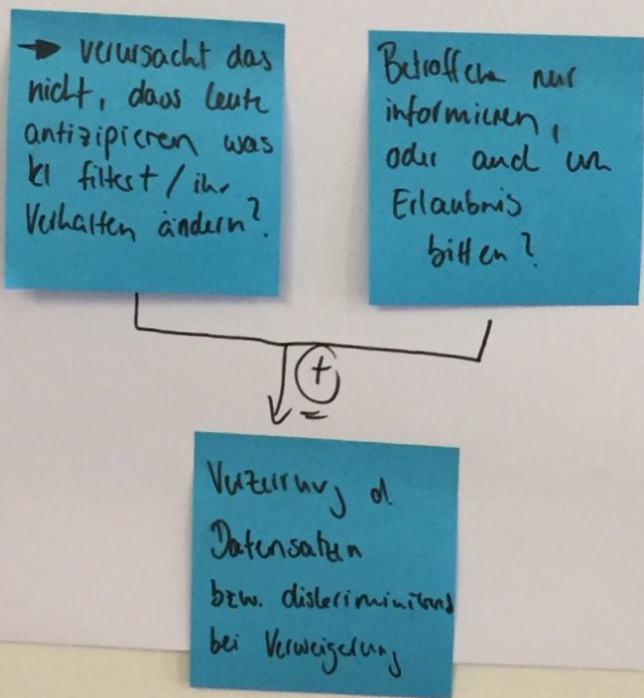 → verursacht das
nicht, dass leute
antizipieren was
KI filtert / ihr
Verhalten ändern?
Betroffene nur
informieren,
oder auch um
Erlaubnis
bitten?
+
Verzerrung d.
Datensätzen
bzw. diskriminierung
bei Verweigerung